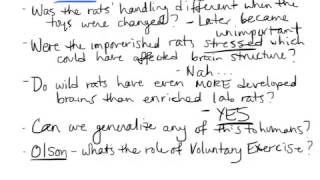 - Was the rats' handling different when the
toys were changed? - Later, became
unimportant
- Were the impoverished rats stressed which
could have affected brain structure?
- Nah...
- Do wild rats have even MORE developed
brains than enriched lab rats?
- YES
- Can we generalize any of this to humans?
- Olson - whats the role of Voluntary Exercise?